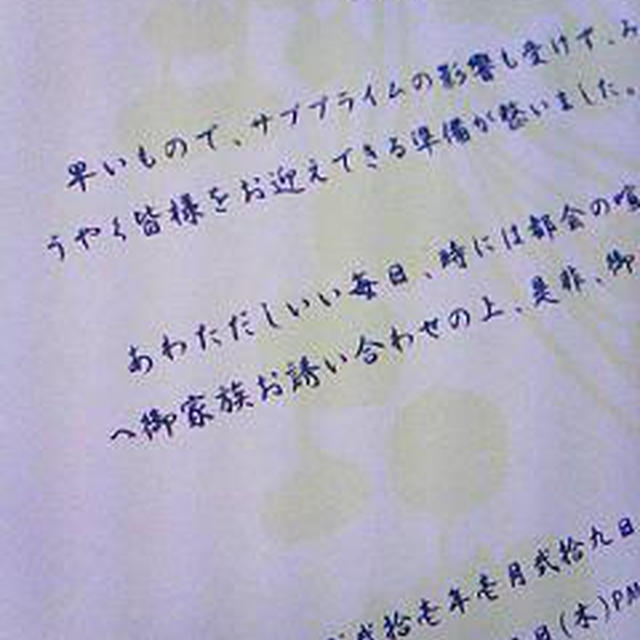 早いもので、サブプライムの影響も受けず、み
うやく皆様をお迎えできる準備が整いました。
あわただしいい毎日、時には都会の喧
へ御家族お誘い合わせの上、是非、御
弐拾壱年壱月弐拾九日
日(木)PM